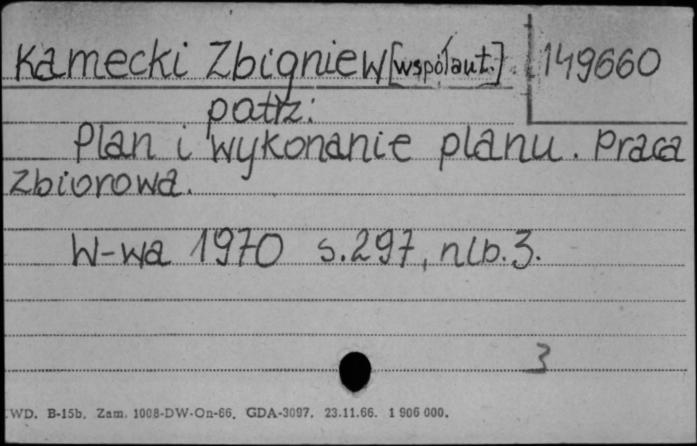 Kamecki Zbigniew [współaut.] 149660
patrz:
Plan i wykonanie planu. Praca
Zbiorowa.
W-wa 1970 s.297, nlb.3.
3
WD. B-15b. Zam. 1008-DW-On-66. GDA-3097. 23.11.66. 1 906 000.